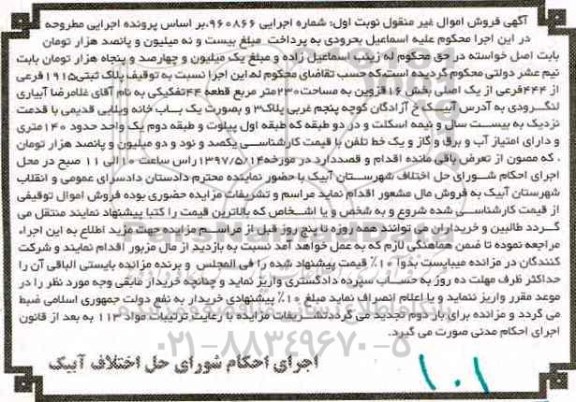 آگهی فروش اموال غیر منقول نوبت اول: شماره اجرایی ۹۶۰۸۶۶، بر اساس پرونده اجرایی مطروحه
در این اجرا محکوم علیه اسماعیل بحرودی به پرداخت مبلغ بیست و نه میلیون و پانصد هزار تومان
بابت اصل خواسته در حق محکوم له زینب اسماعیل زاده و مبلغ یک میلیون و چهارصد و پنجاه هزار تومان بابت
نیم عشر دولتی محکوم گردیده است که حسب تقاضای محکوم له این اجرا نسبت به توقیف پلاک ثبتی ۱۹۱۵ فرعی
از ۴۴۴ فرعی از یک اصلی بخش ۱۶ قزوین به مساحت ۲۳۰ متر مربع قطعه ۴۴ تفکیکی به نام آقای غلامرضا آبیاری
لنگرودی به آدرس آبیک خ آزادگان کوچه پنجم غربی پلاک ۳ و بصورت یک باب خانه ویلایی قدیمی با قدمت
نزدیک به بیست سال و نیمه اسکلت و در دو طبقه که طبقه اول پیلوت و طبقه دوم یک واحد حدود ۱۴۰ متری
و دارای امتیاز آب و برق و گاز و یک خط تلفن با قیمت کارشناسی یکصد و نود و دو میلیون و پانصد هزار تومان
، که مصون از تعرض باقی مانده اقدام و قصددارد در مورخه ۱۳۹۷/۵/۱۴ راس ساعت ۱۰ الی ۱۱ صبح در محل
اجرای احکام شورای حل اختلاف شهرستان آبیک با حضور نماینده محترم دادستان دادسرای عمومی و انقلاب
شهرستان آبیک به فروش مال مشعور اقدام نماید مراسم و تشریفات مزایده حضوری بوده فروش اموال توقیفی
از قیمت کارشناسی شده شروع و به شخص و یا اشخاص که بالاترین قیمت را کتبا پیشنهاد نمایند منتقل می
گردد طالبین و خریداران می توانند همه روزه تا پنج روز قبل از مراسم مزایده جهت مزید اطلاع به این اجراء
مراجعه نموده تا ضمن هماهنگی لازم که به عمل خواهد آمد نسبت به بازدید از مال مزبور اقدام نمایند و شرکت
کنندگان در مزایده میبایست بدوا ۱۰٪ قیمت پیشنهاد شده را فی المجلس و برنده مزایده بایستی الباقی آن را
حداکثر ظرف مهلت ده روز به حساب سپرده دادگستری واریز نماید و چنانچه خریدار مابقی وجه مورد نظر را در
موعد مقرر واریز ننماید و یا اعلام انصراف نماید مبلغ ۱۰٪ پیشنهادی خریدار به نفع دولت جمهوری اسلامی ضبط
می گردد و مزایده برای بار دوم تجدید می گردد تشریفات مزایده با رعایت ترتیبات مواد ۱۱۳ به بعد از قانون
اجرای احکام مدنی صورت می گیرد.
۰۲۱-۸۸۳۴۹۶۷۰-۵
اجرای احکام شورای حل اختلاف آبیک
۱۰۱